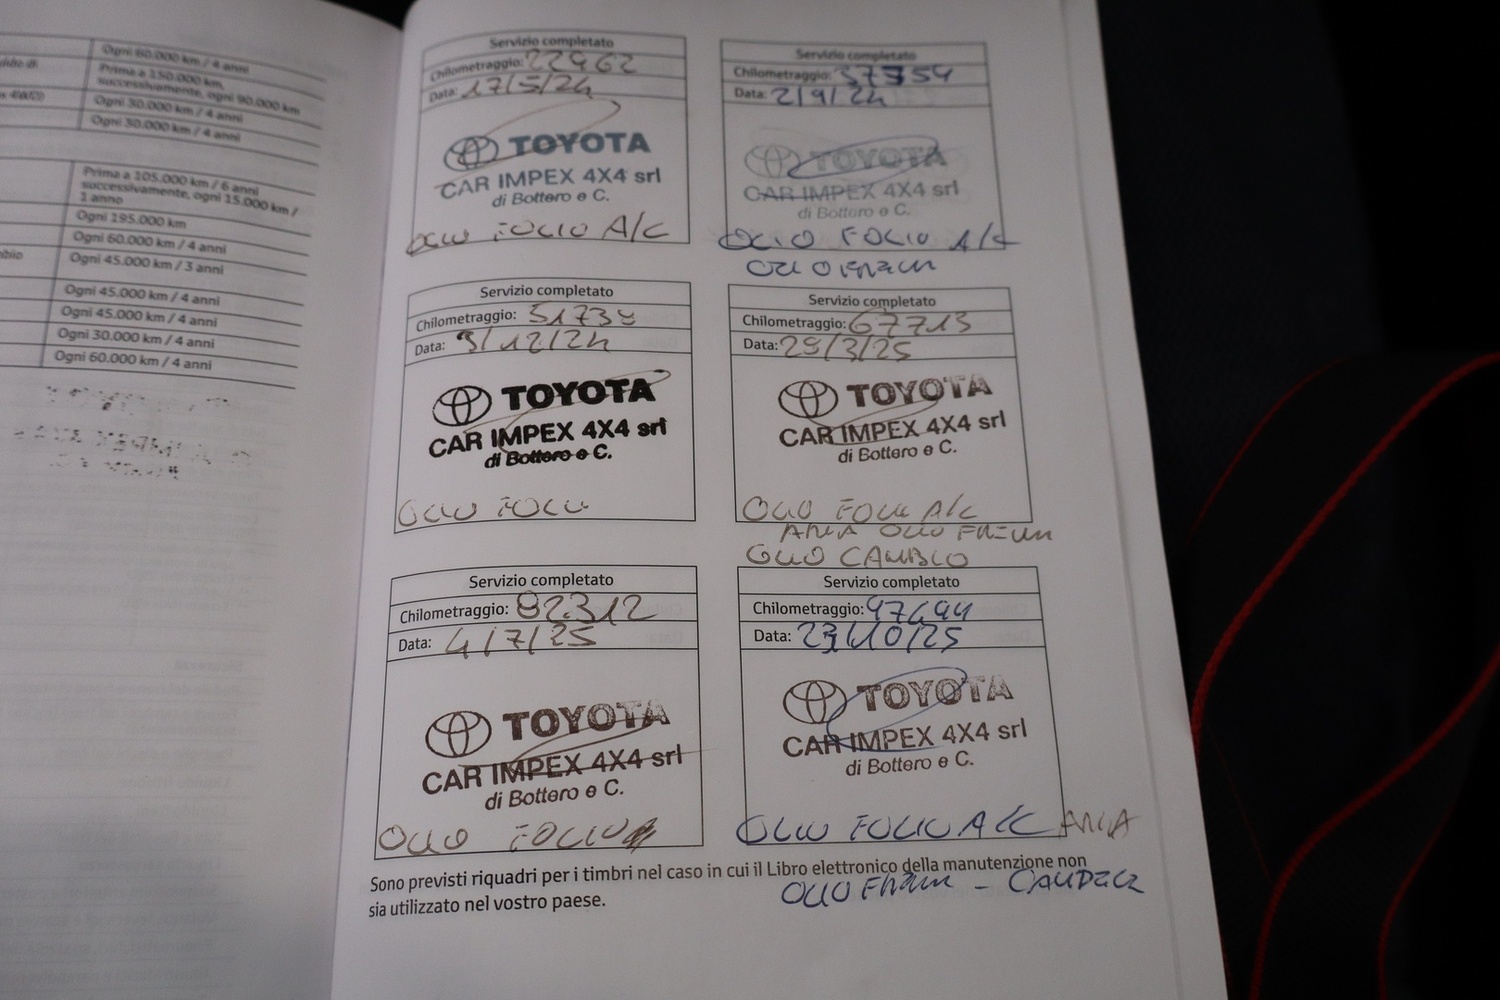 Ogni 60.000 km / 4 anni
Prima a 150.000 km,
successivamente, ogni 90.000 km
Ogni 30.000 km / 4 anni
Ogni 30.000 km / 4 anni
Prima a 105.000 km / 6 anni
successivamente, ogni 15.000 km /
1 anno
Ogni 195.000 km
Ogni 60.000 km / 4 anni
Ogni 45.000 km / 3 anni
Ogni 45.000 km / 4 anni
Ogni 45.000 km / 4 anni
Ogni 30.000 km / 4 anni
Ogni 60.000 km / 4 anni
Servizio completato
Chilometraggio: 22962
Data: 17/5/24
TOYOTA
CAR IMPEX 4X4 srl
di Bottero e C.
OLIO FOLIO A/C
Servizio completato
Chilometraggio: 37354
Data: 2/9/24
TOYOTA
CAR IMPEX 4X4 srl
di Bottero e C.
OLIO FOLIO A/C
OLIO FRENI
Servizio completato
Chilometraggio: 51738
Data: 9/12/24
TOYOTA
CAR IMPEX 4X4 srl
di Bottero e C.
OLIO FOLIO
Servizio completato
Chilometraggio: 67713
Data: 29/3/25
TOYOTA
CAR IMPEX 4X4 srl
di Bottero e C.
OLIO FOLIO A/C
ARIA OLIO FRENI
OLIO CAMBIO
Servizio completato
Chilometraggio: 82312
Data: 4/7/25
TOYOTA
CAR IMPEX 4X4 srl
di Bottero e C.
OLIO FOLIO
Servizio completato
Chilometraggio: 97694
Data: 23/10/25
TOYOTA
CAR IMPEX 4X4 srl
di Bottero e C.
OLIO FOLIO A/C ARIA
OLIO FRENI - CANDELE
Sono previsti riquadri per i timbri nel caso in cui il Libro elettronico della manutenzione non
sia utilizzato nel vostro paese.